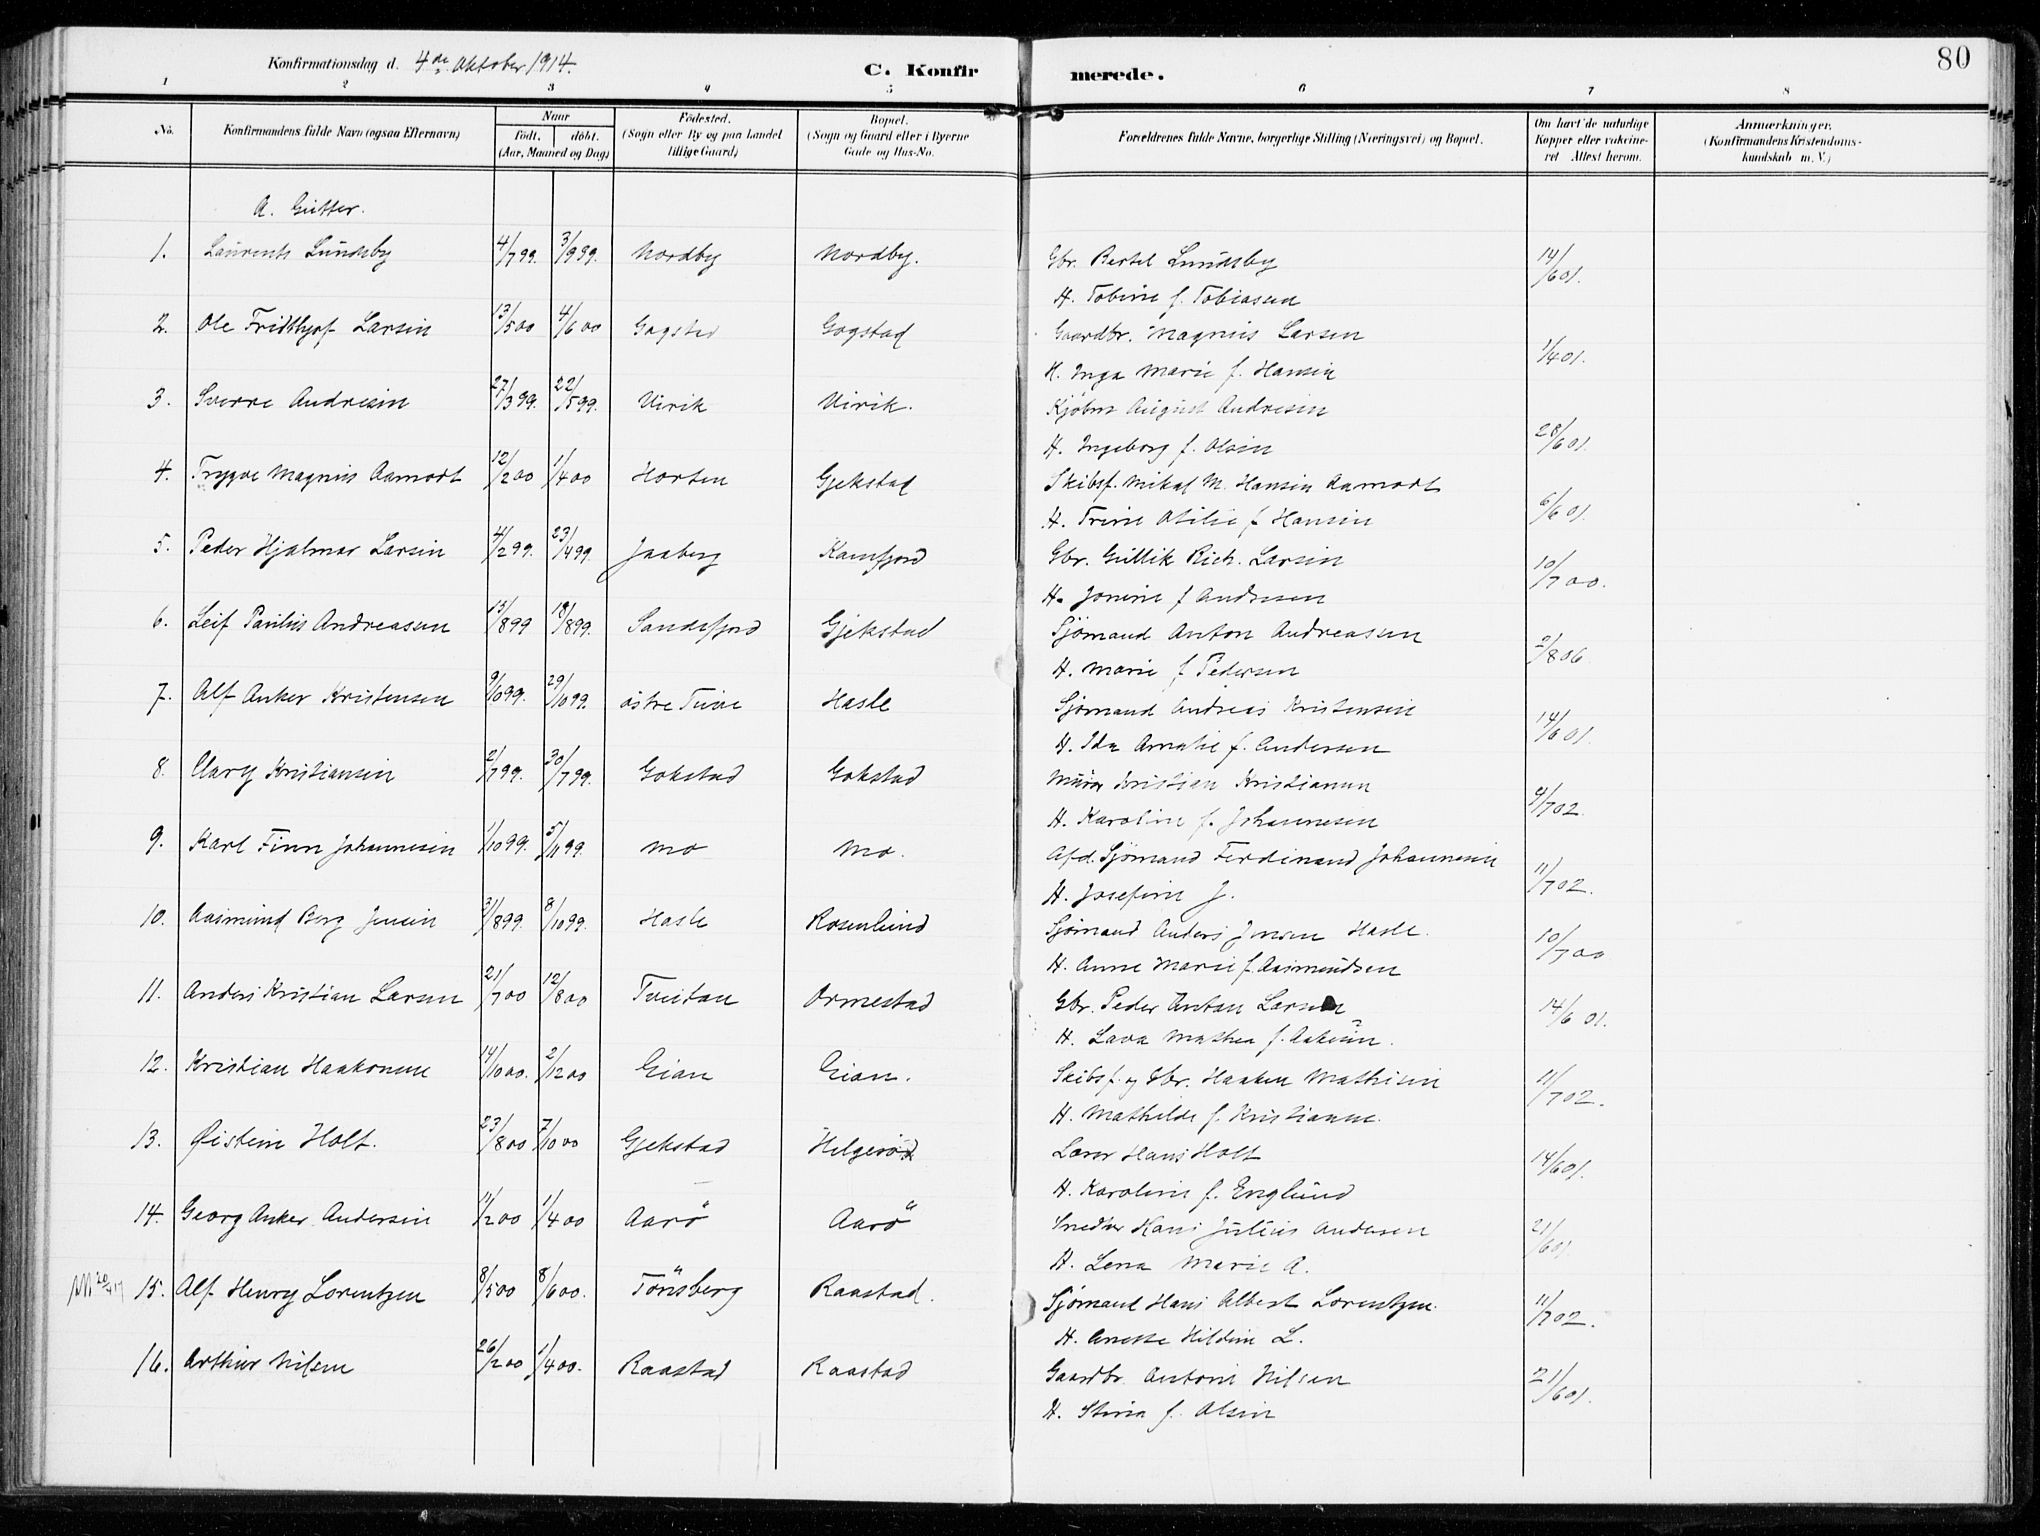 Konfirmationsdag d. 4de Oktober 1914.
C. Konfirmerede.
80
1 2 3 4 5 6 7 8
No. Konfirmandens fulde Navn (ogsaa Efternavn) Naar født, døbt. (Aar, Maaned og Dag) Fødested. (Sogn eller By og paa Landet tillige Gaard) Bopæl. (Sogn og Gaard eller i Byerne Gade og Hus-No. Forældrenes fulde Navne, borgerlige Stilling (Næringsvei) og Bopæl. Om havt de naturlige Kopper eller vakcineret Attest herom. Anmærkninger. (Konfirmandens Kristendomskundskab m. V.)
A. Gutter.
1. Laurents Lundsby 4/7 99. 3/9 99. Nordby Nordby. Gbr. Bertel Lundsby 14/6 01.
H. Tobine f. Tobiasen
2. Ole Fridthjof Larsen 13/5 00 4/6 00 Gogsted Gogstad Gaardbr. Magnus Larsen 1/4 01.
H. Inga Marie f. Hansen
3. Sverre Andresen 27/3 99. 22/5 99. Virik Virik. Kjøbm August Andresen 28/6 01.
H. Ingeborg f. Olsen
4. Trygve Magnus Aamodt 12/2 00 1/4 00 Horten Gjekstad Skibsf. Mikal M. Hansen Aamodt 6/6 01.
H. Trine Otilie f Hansen
5. Peder Hjalmar Larsen 4/2 99. 23/4 99. Jaaberg Kamfjord Gbr. Gullik Rich. Larsen 10/7 00.
H. Jonine f Andresen
6. Leif Paulus Andreassen 13/8 99 18/8 99. Sandefjord Gjekstad Sjømand Anton Andreassen 2/8 06
H. Marie f Pedersen
7. Alf Anker Kristensen 9/10 99. 29/10 99. østre Tuve Hasle Sjømand Andreas Kristensen 14/6 01
H. Ida Amalie f. Andersen
8. Clary Kristiansen 2/7 99. 30/7 99. Gokstad Gokstad Murer Kristian Kristiansen 9/7 02
H. Karoline f. Johannesen
9. Karl Finn Johannesen 1/10 99. 5/11 99. Mo Mo. Afd. Sjømand Ferdinand Johannesen 11/7 02.
H. Josefine J.
10. Aasmund Berg Jensen 31/8 99. 8/10 99. Hasle Rosenlund Sjømand Anders Jensen Hasle. 10/7 00
H. Anne Marie f. Aasmundsen
11. Anders Kristian Larsen 21/7 00 12/8 00 Tveitan Ormestad Gbr. Peder Anton Larsen 14/6 01.
H. Lava Mathea f.
12. Kristian Haakonsen 14/10 00. 2/12 00 Gian Gian. Skibsf. og Gbr. Haaken Mathisen 11/7 02.
H. Mathilde f. Kristiansen.
13. Øistein Holt. 23/8 00 7/10 00 Gjekstad Helgerød Lærer Hans Holt 14/6 01.
H. Karoline f. Englund
14. Georg Anker Andersen 11/2 00 1/4 00 Aarö Aarö Smedm Hans Julius Andersen 21/6 01.
H. Lena Marie A.
15. Alf Henry Lorentzen 8/5 00 8/6 00. Tönsberg Raastad. Sjømand Hans Albert Lorentzen. 11/7 02.
H. Anette Hildine L.
16. Arthur Nilsen 26/2 00 1/4 00. Raastad Raastad Gaardbr. Anton Nilsen 21/6 01.
H. Stina f. Olsen